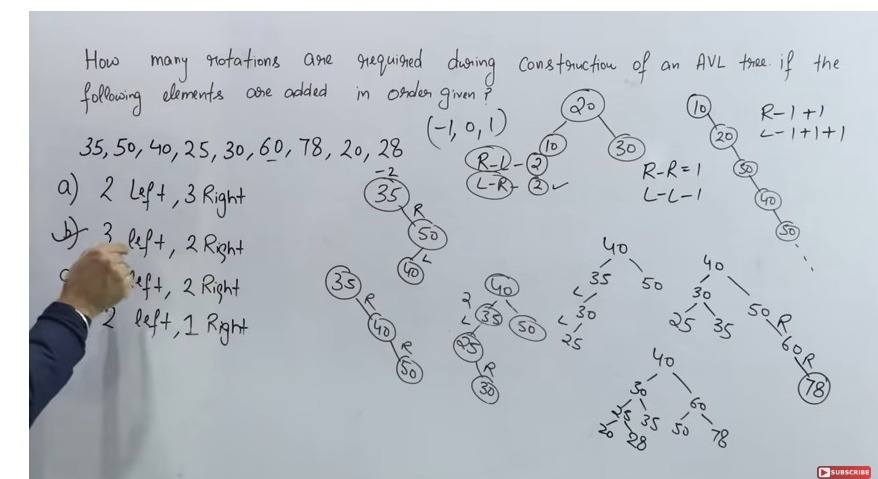 How many rotations are required during construction of an AVL tree if the
following elements are added in order given?
35, 50, 40, 25, 30, 60, 78, 20, 28
(-1, 0, 1)
a) 2 left, 3 Right
b) 3 left, 2 Right
left, 2 Right
2 left, 1 Right
-2
35
R
50
L
40
R-L- 2
L-R- 2 ✓
20
10 30
R-R=1
L-L-1
10
20
30
40
50
R-1+1
L-1+1+1
35
R
40
R
50
40
2
35
50
L
25
R
30
40
35 50
L
30
L
25
40
30
25 35
50
R
60
R
78
40
30 60
25 35 50 78
20 28
SUBSCRIBE